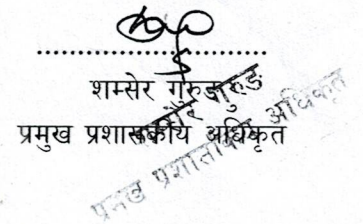 शम्सेर गुरुङ
प्रमुख प्रशासकीय अधिकृत
प्रमुख प्रशासकीय अधिकृत